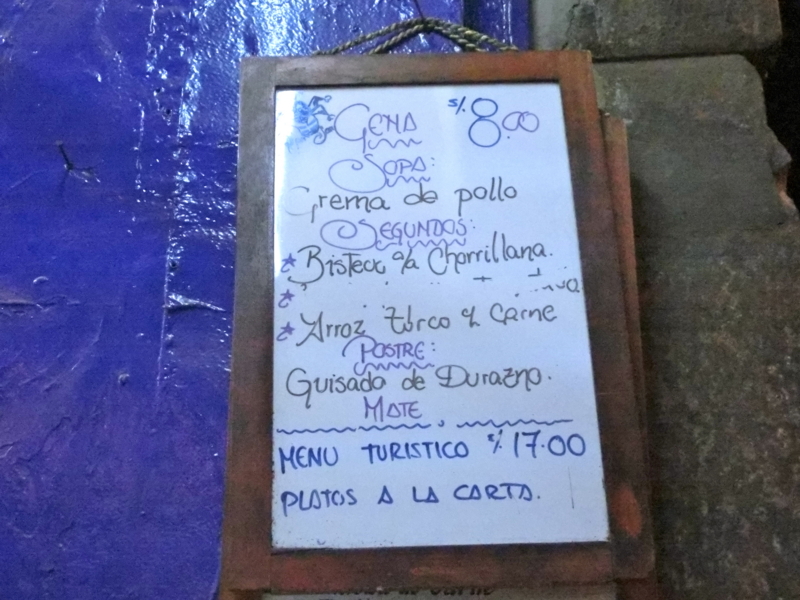 CENA S/. 8.00
SOPA:
Crema de pollo
SEGUNDOS:
* Bisteck a/a Chorrillana.
*
* Arroz turco c/ Carne
POSTRE:
Guisado de Durazno.
MATE
MENU TURISTICO S/. 17.00
PLATOS A LA CARTA.